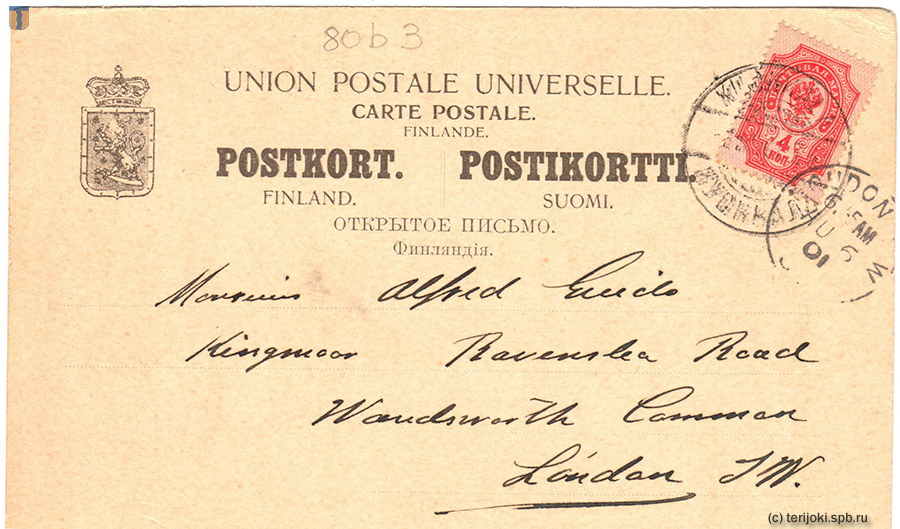 80b3
UNION POSTALE UNIVERSELLE.
CARTE POSTALE.
FINLANDE.
POSTKORT. POSTIKORTTI.
FINLAND. SUOMI.
ОТКРЫТОЕ ПИСЬМО.
Финляндія.
4
КОП
LONDON
AM
01
Alfred Guido
Kingmoor Ravenslea Road
Wandsworth Common
London SW.
(c) terijoki.spb.ru